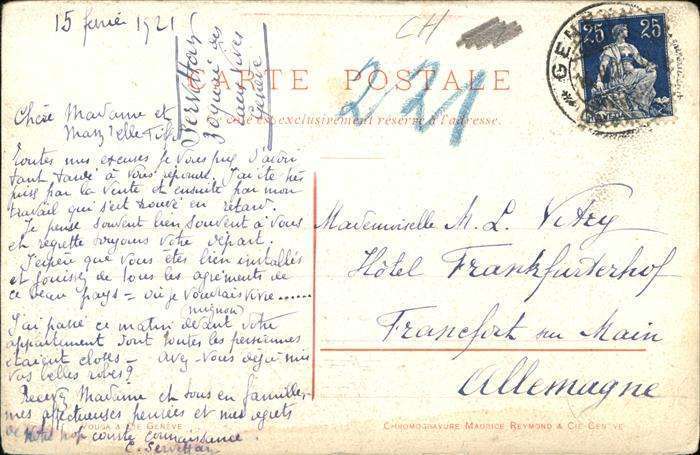 15 février 1921
Servettaz
2 quai des
Eaux Vives
Genève
CH
221
GEN
25 25
CARTE POSTALE
Côté exclusivement réservé à l'adresse.
Chère Madame et
Mad'elle
Toutes mes excuses je vous prie d'avoir
tant tardé à vous répondre. J'ai été très
prise par la vente et ensuite par mon
travail qui s'est trouvé en retard.
Je pense souvent bien souvent à vous
et regrette toujours votre départ.
J'espère que vous êtes bien installés
et jouissez de tous les agréments de
ce beau pays = où je voudrais vivre.......
J'ai passé ce matin devant votre
mignon
appartement dont toutes les persiennes
étaient closes — Avez-vous déjà mis
vos belles robes?
Recevez Madame et tous en famille,
mes affectueuses pensées et mes regrets
de notre trop courte connaissance.
E. Servettaz
Mademoiselle M. L. Vitry
Hôtel Frankfurterhof
Francfort sur Main
Allemagne
VOUGA & CIE GENÈVE
CHROMOGRAVURE MAURICE REYMOND & CIE GENÈVE